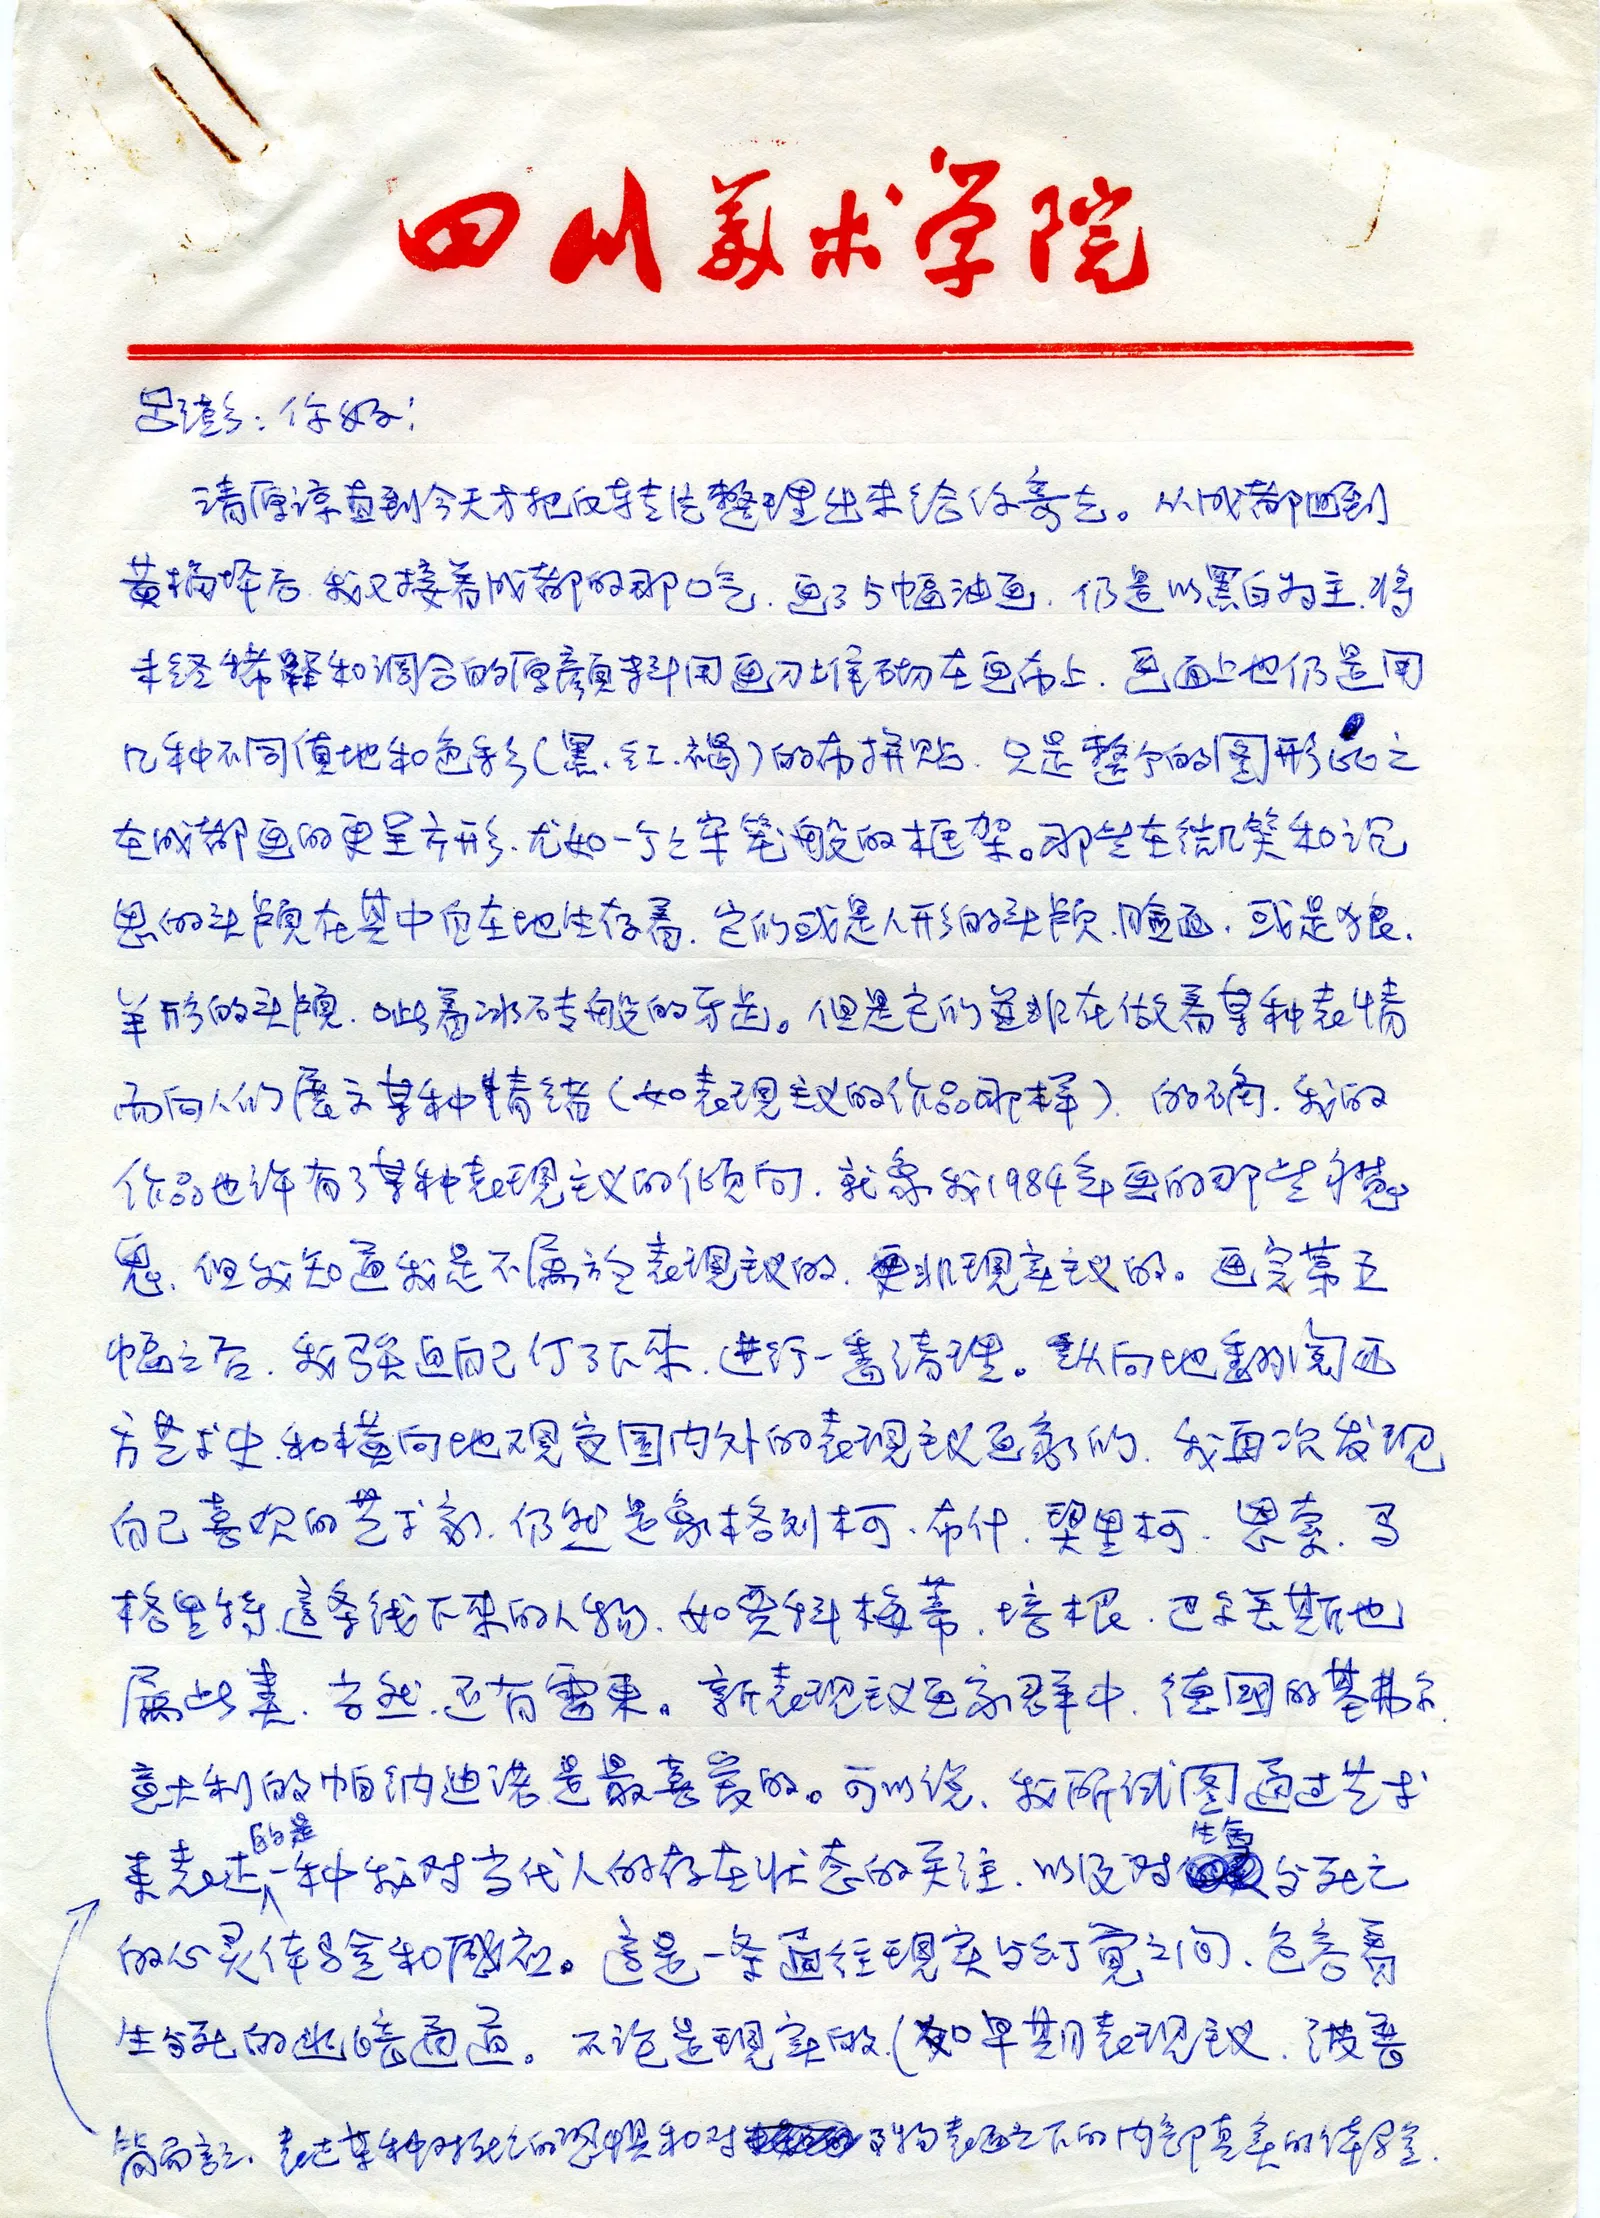 四川美术学院
吕澎：你好！
请原谅直到今天才把反转片整理出来给你寄去。从成都回到
黄桷坪后，我又接着成都的那口气，画了5幅油画，仍是以黑白为主，将
未经稀释和调合的原颜料用画刀堆砌在画布上，画面上也仍是用
几种不同质地和色彩（黑、红、褐）的布拼贴，只是整个的图形 之
在成都画的更呈方形，尤如一个个牢笼般的框架。那些在微笑和沉
思的头颅在其中自在地生存着，它们或是人形的头颅、脸面，或是狼、
羊形的头颅，呲着冰砖般的牙齿。但是它们并非在做着某种表情
而向人们展示某种情绪（如表现主义的作品那样），的确，我的
作品也许有了某种表现主义的倾向，就象我1984年画的那些
鬼，但我知道我是不属於表现主义的，更非现实主义的。画完第五
幅之后，我强迫自己停了下来，进行一番清理。纵向地翻阅西
方艺术史，和横向地观变国内外的表现主义画家们，我再次发现
自己喜欢的艺术家，仍然是象格列柯、布什、契里柯、恩索、马
格里特，这条线下来的人物，如贾科梅蒂、培根、巴尔丢斯也
属此类，当然，还有雷东。新表现主义画家群中，德国的基弗尔，
意大利的帕纳迪诺是最喜爱的。可以说，我所试图通过艺术
来表述的是一种我对当代人的存在状态的关注，以及对生命与死亡
的心灵体验和感应。这是一条通往现实与幻觉之间，包含着
生与死的幽暗通道。不论是现实的（如早期表现主义，波普
简而言之，表达某种对死亡的恐惧和对 事物表面之下的内部真实的体验。